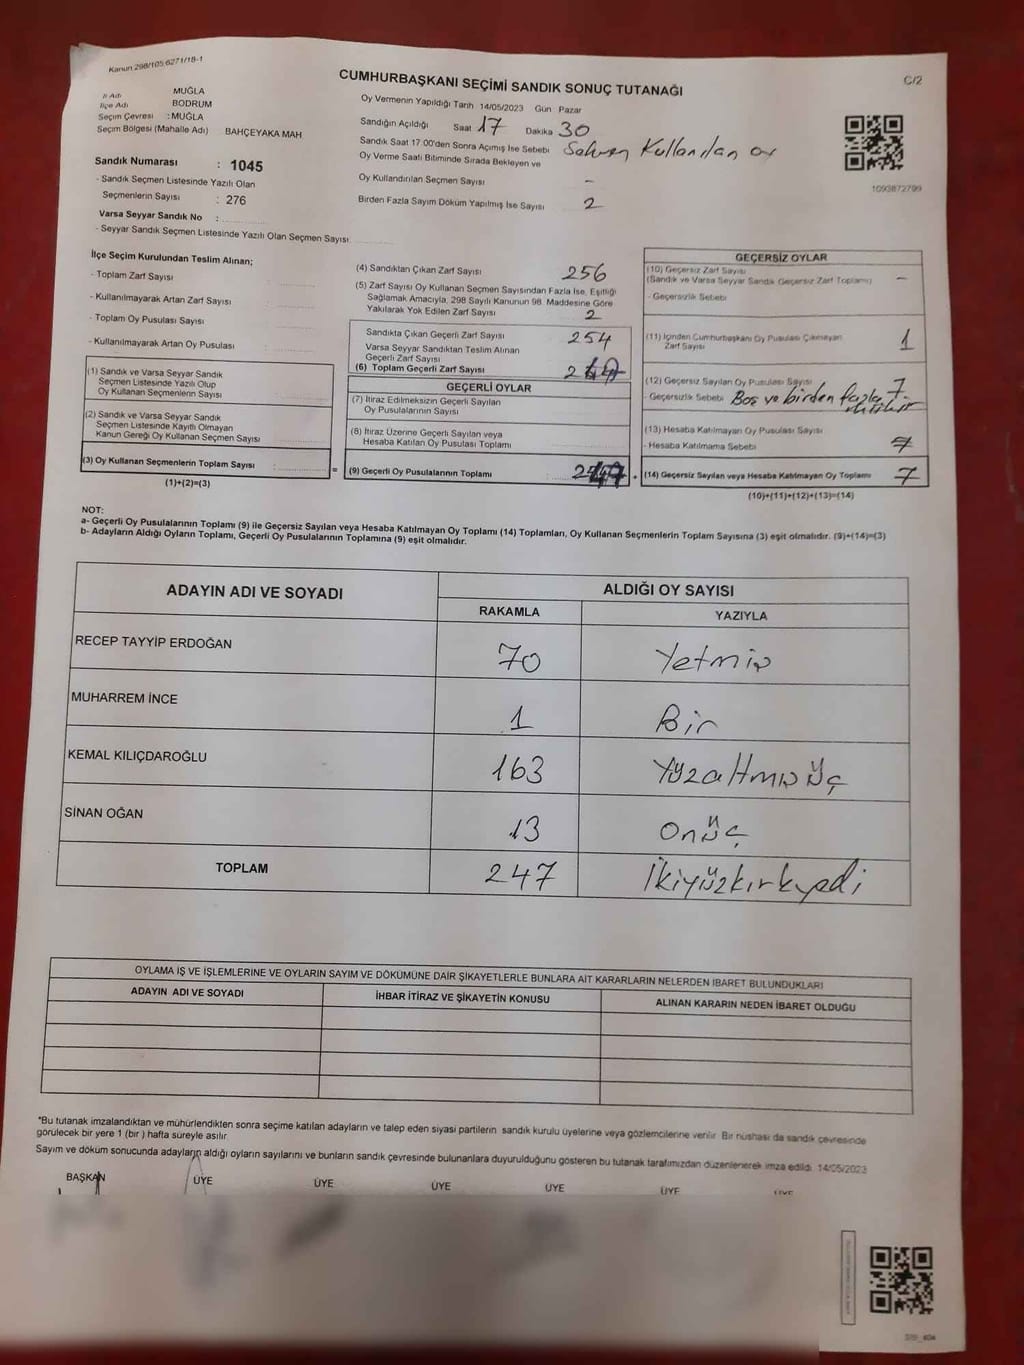 Kanun 298/105;6271/18-1
CUMHURBAŞKANI SEÇİMİ SANDIK SONUÇ TUTANAĞI
C/2
İl Adı MUĞLA
İlçe Adı BODRUM
Seçim Çevresi : MUĞLA
Seçim Bölgesi (Mahalle Adı) BAHÇEYAKA MAH
Sandık Numarası : 1045
- Sandık Seçmen Listesinde Yazılı Olan
Seçmenlerin Sayısı : 276
Varsa Seyyar Sandık No :
- Seyyar Sandık Seçmen Listesinde Yazılı Olan Seçmen Sayısı
Oy Vermenin Yapıldığı Tarih 14/05/2023 Gün Pazar
Sandığın Açıldığı Saat 17 Dakika 30
Sandık Saat 17.00'den Sonra Açımış İse Sebebi Sehven Kullanılan oy
Oy Verme Saati Bitiminde Sırada Bekleyen ve
Oy Kullandırılan Seçmen Sayısı -
Birden Fazla Sayım Döküm Yapılmış İse Sayısı 2
1093872799
İlçe Seçim Kurulundan Teslim Alınan;
- Toplam Zarf Sayısı :
- Kullanılmayarak Artan Zarf Sayısı :
- Toplam Oy Pusulası Sayısı :
- Kullanılmayarak Artan Oy Pusulası :
(1) Sandık ve Varsa Seyyar Sandık
Seçmen Listesinde Yazılı Olup
Oy Kullanan Seçmenlerin Sayısı :
(2) Sandık ve Varsa Seyyar Sandık
Seçmen Listesinde Kayıtlı Olmayan
Kanun Gereği Oy Kullanan Seçmen Sayısı :
(3) Oy Kullanan Seçmenlerin Toplam Sayısı :
(1)+(2)=(3)
(4) Sandıktan Çıkan Zarf Sayısı 256
(5) Zarf Sayısı Oy Kullanan Seçmen Sayısından Fazla İse, Eşitliği
Sağlamak Amacıyla, 298 Sayılı Kanunun 98. Maddesine Göre
Yakılarak Yok Edilen Zarf Sayısı 2
Sandıkta Çıkan Geçerli Zarf Sayısı 254
Varsa Seyyar Sandıktan Teslim Alınan
Geçerli Zarf Sayısı
(6) Toplam Geçerli Zarf Sayısı
GEÇERLİ OYLAR
(7) İtiraz Edilmeksizin Geçerli Sayılan
Oy Pusulalarının Sayısı
(8) İtiraz Üzerine Geçerli Sayılan veya
Hesaba Katılan Oy Pusulası Toplamı
= (9) Geçerli Oy Pusulalarının Toplamı :
GEÇERSİZ OYLAR
(10) Geçersiz Zarf Sayısı
(Sandık ve Varsa Seyyar Sandık Geçersiz Zarf Toplamı) -
- Geçersizlik Sebebi
(11) İçinden Cumhurbaşkanı Oy Pusulası Çıkmayan
Zarf Sayısı 1
(12) Geçersiz Sayılan Oy Pusulası Sayısı 7
- Geçersizlik Sebebi Boş ve birden fazla
(13) Hesaba Katılmayan Oy Pusulası Sayısı
- Hesaba Katılmama Sebebi
+ (14) Geçersiz Sayılan veya Hesaba Katılmayan Oy Toplamı 7
(10)+(11)+(12)+(13)=(14)
NOT:
a- Geçerli Oy Pusulalarının Toplamı (9) ile Geçersiz Sayılan veya Hesaba Katılmayan Oy Toplamı (14) Toplamları, Oy Kullanan Seçmenlerin Toplam Sayısına (3) eşit olmalıdır. (9)+(14)=(3)
b- Adayların Aldığı Oyların Toplamı, Geçerli Oy Pusulalarının Toplamına (9) eşit olmalıdır.
ADAYIN ADI VE SOYADI
ALDIĞI OY SAYISI
RAKAMLA YAZIYLA
RECEP TAYYİP ERDOĞAN 70 Yetmiş
MUHARREM İNCE 1 Bir
KEMAL KILIÇDAROĞLU 163 Yüzaltmışüç
SİNAN OĞAN 13 Onüç
TOPLAM 247 İkiyüzkırkyedi
OYLAMA İŞ VE İŞLEMLERİNE VE OYLARIN SAYIM VE DÖKÜMÜNE DAİR ŞİKAYETLERLE BUNLARA AİT KARARLARIN NELERDEN İBARET BULUNDUKLARI
ADAYIN ADI VE SOYADI İHBAR İTİRAZ VE ŞİKAYETİN KONUSU ALINAN KARARIN NEDEN İBARET OLDUĞU
*Bu tutanak imzalandıktan ve mühürlendikten sonra seçime katılan adayların ve talep eden siyasi partilerin sandık kurulu üyelerine veya gözlemcilerine verilir. Bir nüshası da sandık çevresinde
görülecek bir yere 1 (bir ) hafta süreyle asılır.
Sayım ve döküm sonucunda adayların aldığı oyların sayılarını ve bunların sandık çevresinde bulunanlara duyurulduğunu gösteren bu tutanak tarafımızdan düzenlenerek imza edildi. 14/05/2023
BAŞKAN ÜYE ÜYE ÜYE ÜYE ÜYE ÜYE